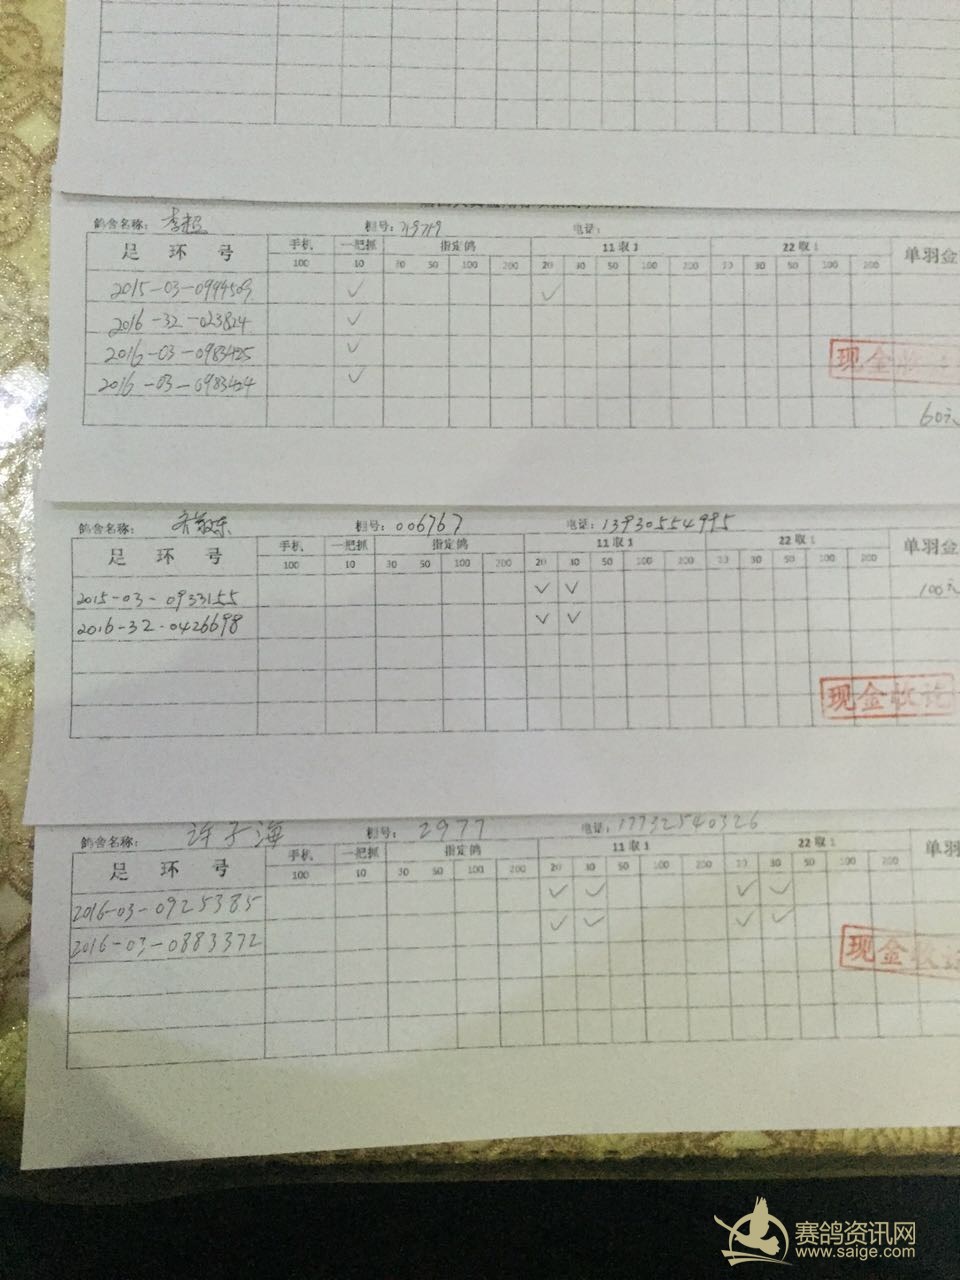 鸽舍名称： 李超 棚号： 719719 电话：
足环号 手机 一把抓 指定鸽 11取1 22取1 单羽金
100 10 30 50 100 200 20 30 50 100 200 20 30 50 100 200
2015-03-0994503 ✓ ✓
2016-32-023824 ✓
2016-03-0983425 ✓
现金收
2016-03-0983424 ✓
60元
鸽舍名称： 棚号： 006767 电话： 13930554995
足环号 手机 一把抓 指定鸽 11取1 22取1 单羽金
100 10 30 50 100 200 20 30 50 100 200 20 30 50 100 200
2015-03-0933155 ✓ ✓ 100元
2016-32-0426698 ✓ ✓
现金收讫
鸽舍名称： 许子海 棚号： 2977 电话： 17732540326
足环号 手机 一把抓 指定鸽 11取1 22取1 单羽
100 10 30 50 100 200 20 30 50 100 200 20 30 50 100 200
2016-03-0925385 ✓ ✓ ✓ ✓
2016-03-0883372 ✓ ✓ ✓ ✓
现金收讫
赛鸽资讯网
www.saige.com